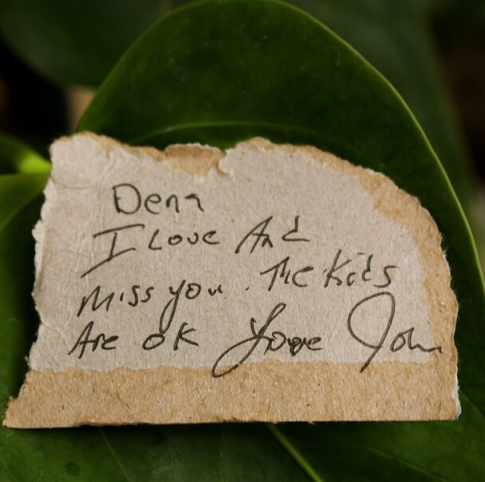 Dena
I Love And
Miss you. The Kids
Are OK Love John